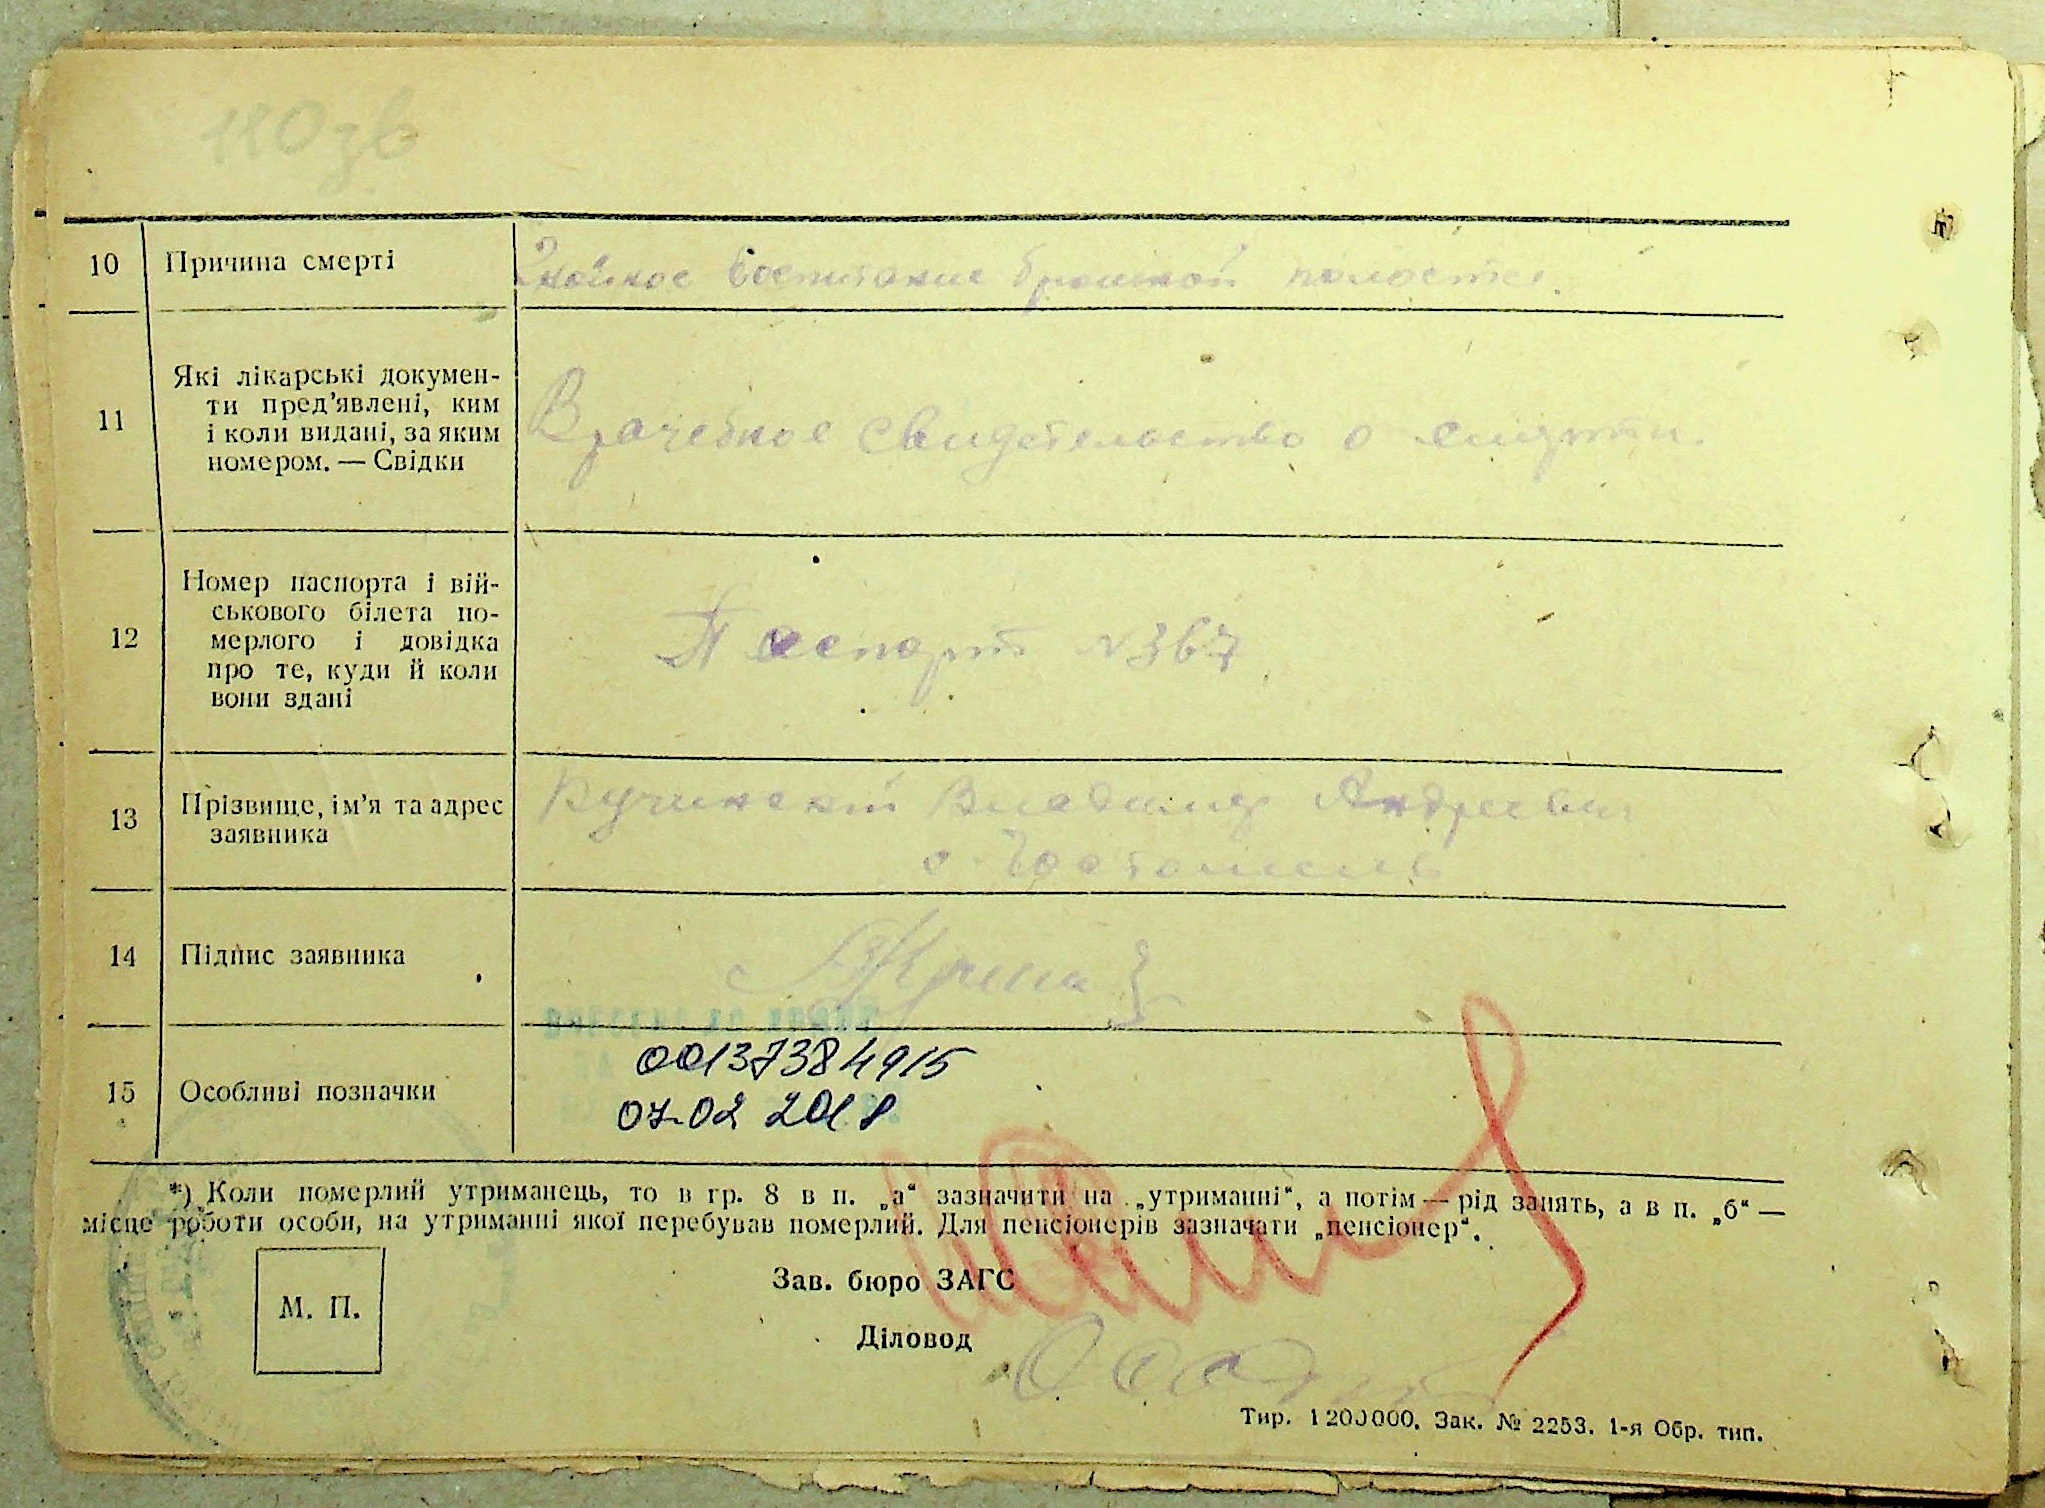 180зв
10 Причина смерті
Гнойное воспаление брюшной полости.
11 Які лікарські докумен-
ти пред’явлені, ким
і коли видані, за яким
номером. — Свідки
Врачебное свидетельство о смерти.
12 Номер паспорта і вій-
ськового білета по-
мерлого і довідка
про те, куди й коли
вони здані
Паспорт №367
13 Прізвище, ім’я та адрес
заявника
Кучинский Владимир Андреевич
с. Гостомель
14 Підпис заявника
15 Особливі позначки
00137384915
07.02 2018
*) Коли померлий утриманець, то в гр. 8 в п. „а“ зазначити на „утриманні“, а потім — рід занять, а в п. „б“ —
місце роботи особи, на утриманні якої перебував померлий. Для пенсіонерів зазначати „пенсіонер“.
М. П.
Зав. бюро ЗАГС
Діловод
Тир. 1200000. Зак. № 2253. 1-я Обр. тип.